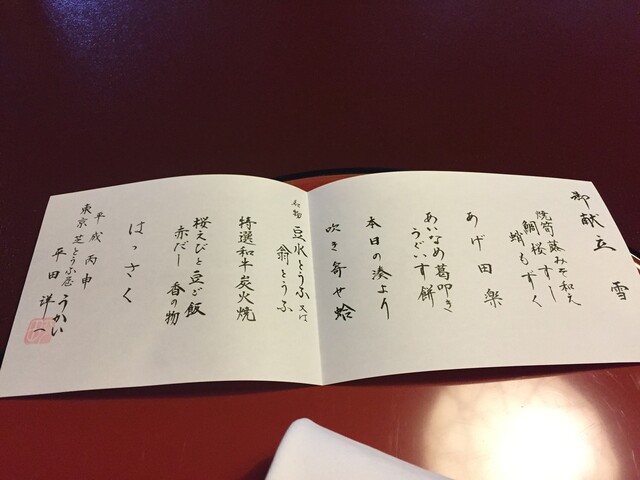 御献立 雪
焼筍蕗みそ和え
鯛桜すし
蛸もずく
あげ田楽
あいなめ葛叩き
うぐいす餅
本日の湊より
吹き寄せ蛤
名物 豆水とうふ 又は
翁とうふ
特選和牛炭火焼
桜えびと豆ご飯
赤だし 香の物
はっさく
平成丙申
東京芝とうふ屋うかい
平田詳一